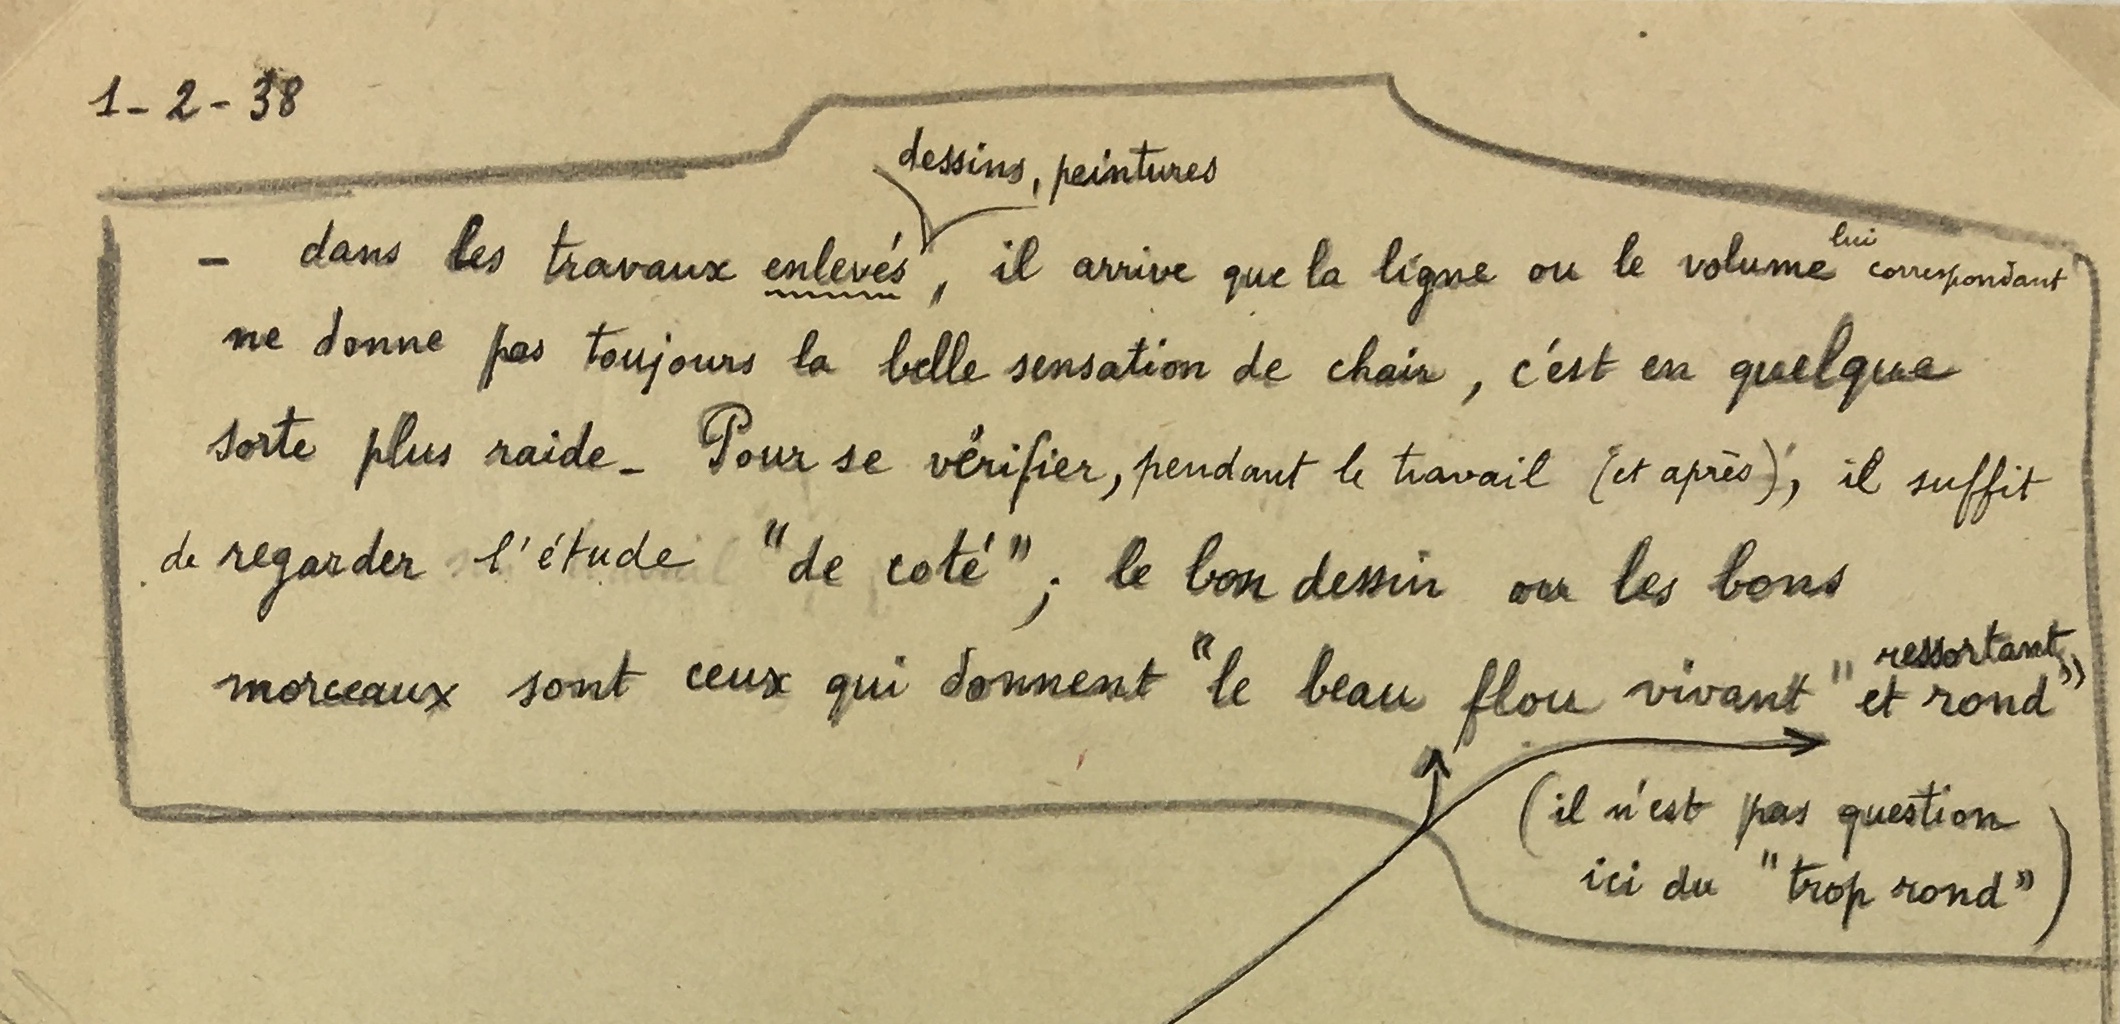 1-2-38
dessins, peintures
- dans les travaux enlevés, il arrive que la ligne ou le volume lui correspondant
ne donne pas toujours la belle sensation de chair, c'est en quelque
sorte plus raide_ Pour se vérifier, pendant le travail (et après), il suffit
de regarder l'étude "de coté"; le bon dessin ou les bons
morceaux sont ceux qui donnent "le beau flou vivant" ressortant
"et rond"
(il n'est pas question
ici du "trop rond")